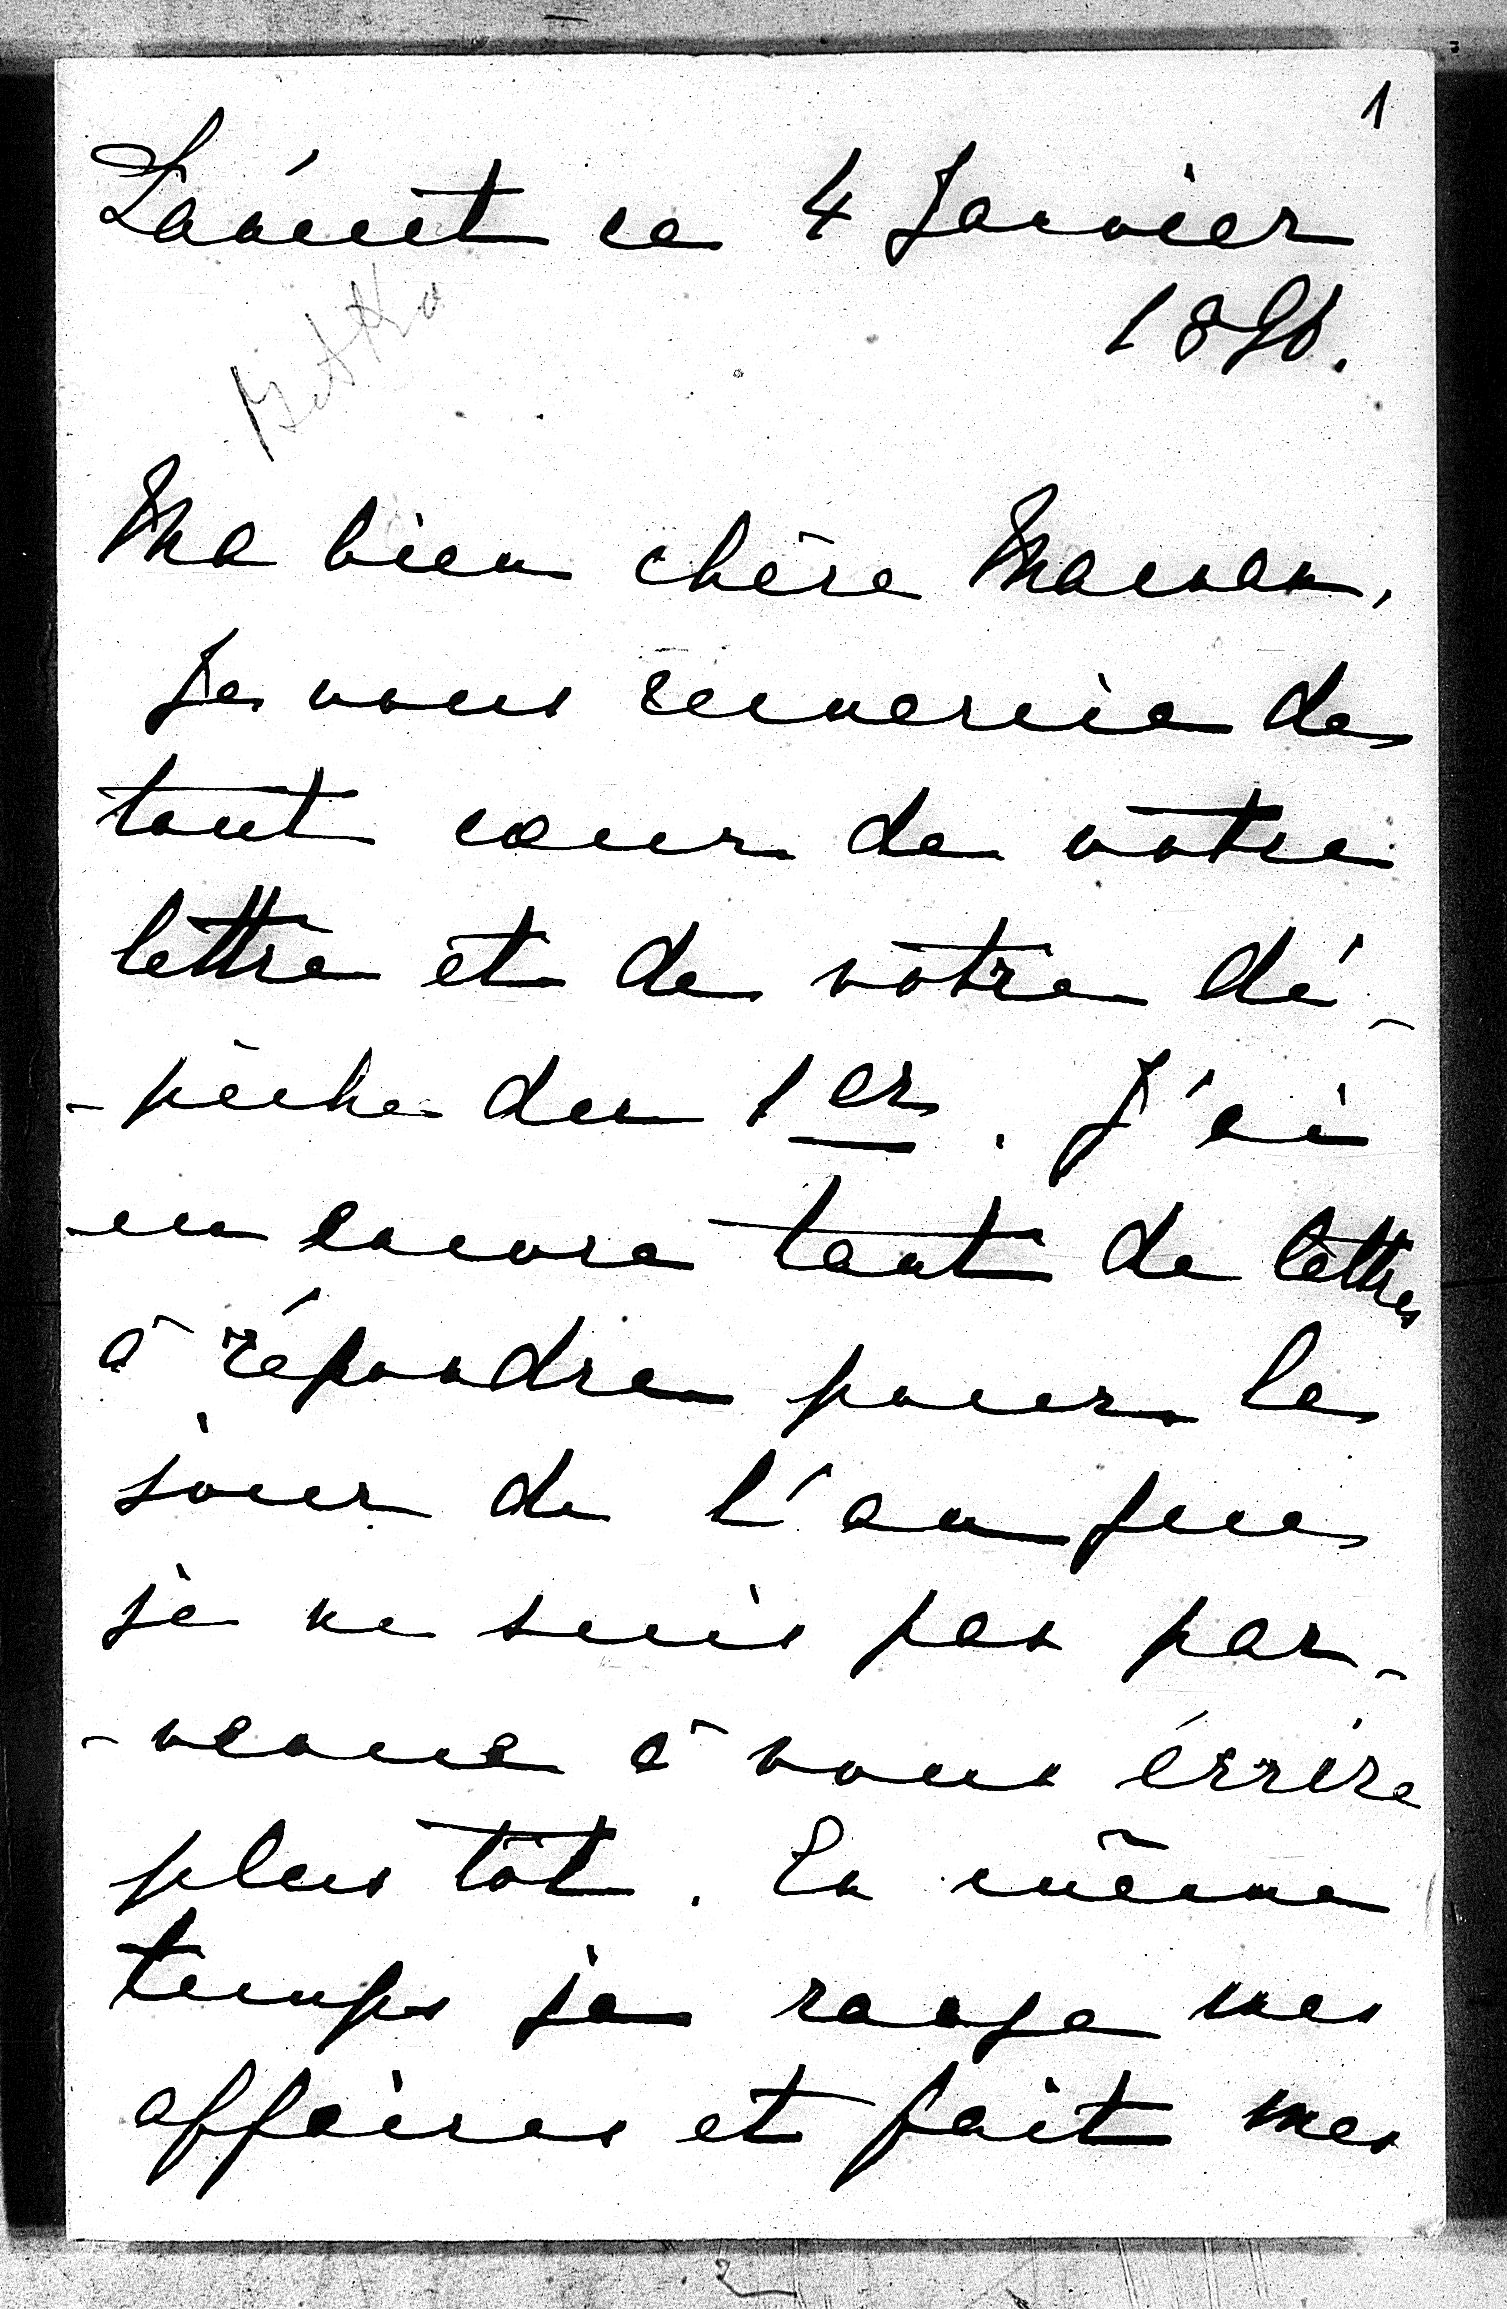 1
Łańcut ce 4 Janvier
1896.
Matka
Ma bien chère Maman,
Je vous remercie de
tout cœur de votre
lettre et de votre dé-
-pêche du 1er. J'ai
eu encore tant de lettres
à répondre pour le
jour de l'an que
je ne suis pas par-
-venue à vous écrire
plus tôt. En même
temps je range mes
affaires et fait mes